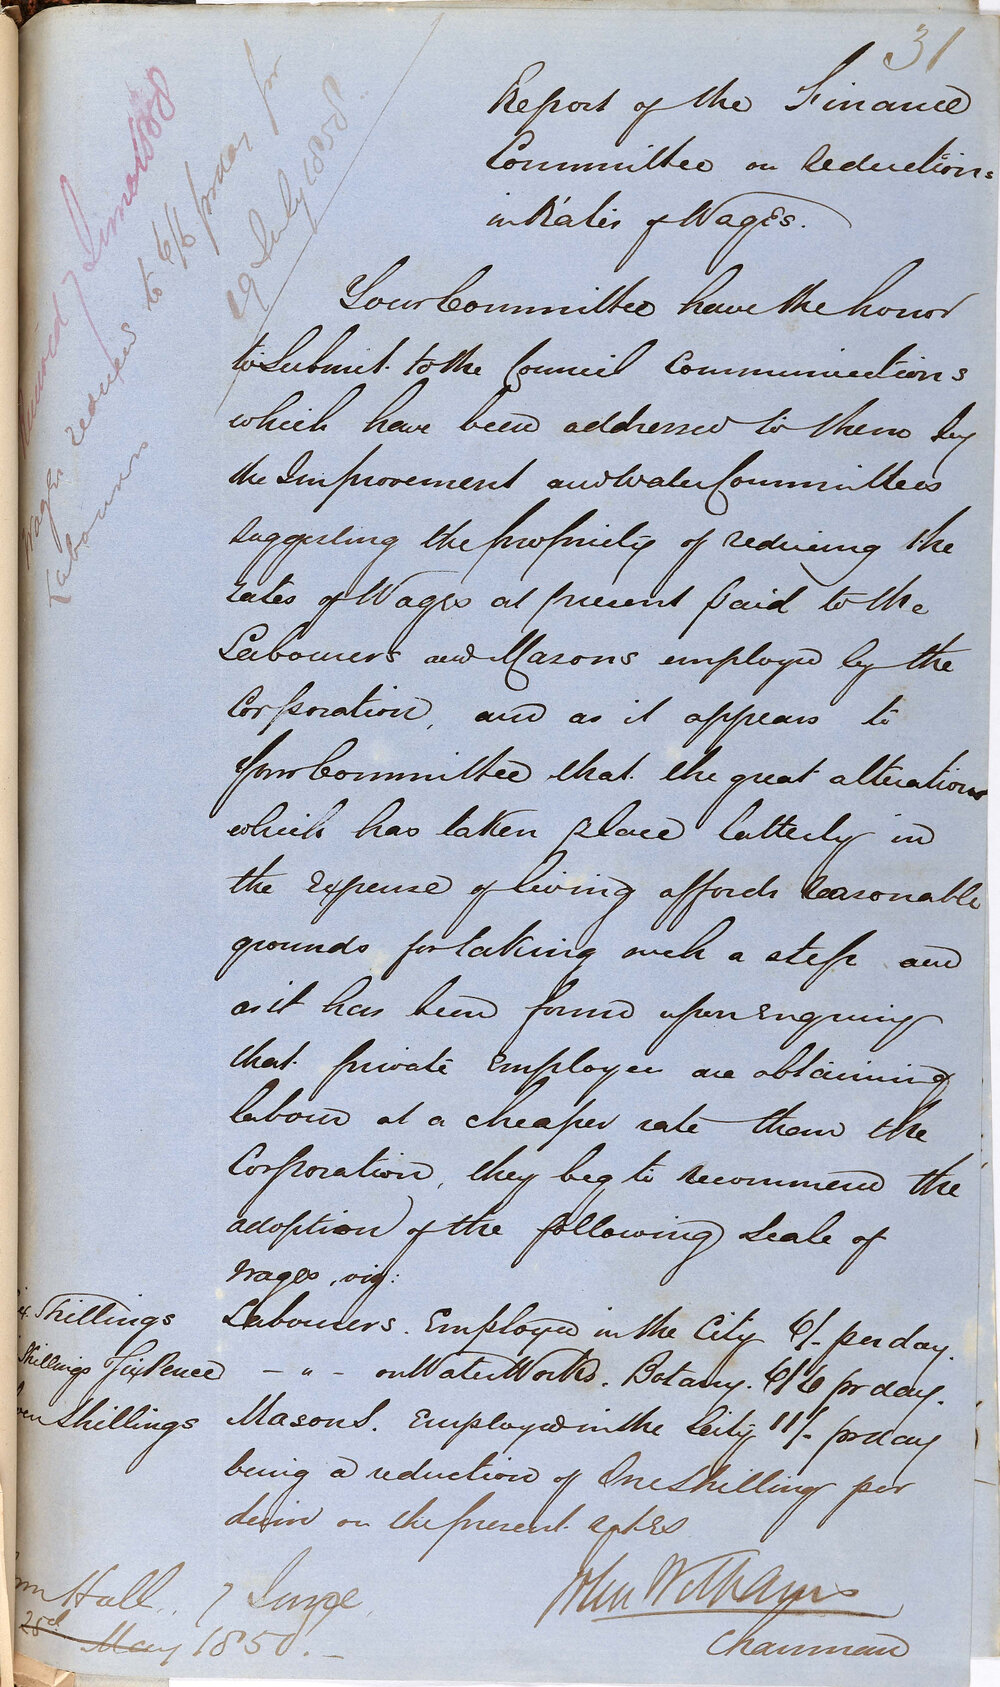 31
Report of the Finance
Committee on reduction=
in Rates of Wages.
Your Committee have the honor
to Submit to the Council Communications
which have been addressed to them by
the Improvement and Water Committees
suggesting the propriety of reducing the
rates of Wages at present paid to the
Labourers and Masons employed by the
Corporation, and as it appears to
Your Committee that the great alterations
which has taken place latterly in
the expense of living affords reasonable
grounds for taking such a step and
as it has been found upon Enquiry
that private Employers are obtaining
labour at a cheaper rate than the
Corporation, they beg to recommend the
adoption of the following Scale of
Wages, viz:
Shillings Labourers. Employed in the City 6/- per day.
Shillings & Six Pence - " - on Water Works. Botany. 6/6 pr day.
Shillings Masons. Employed in the City 11/- pr day
being a reduction of One Shilling per
diem on the present rates
John Williams
Chairman
Hall, 7 June,
28d May 1858.
7 June 1858
Wages reduced to 6/6 pr day for
Labourers 19 July 1858